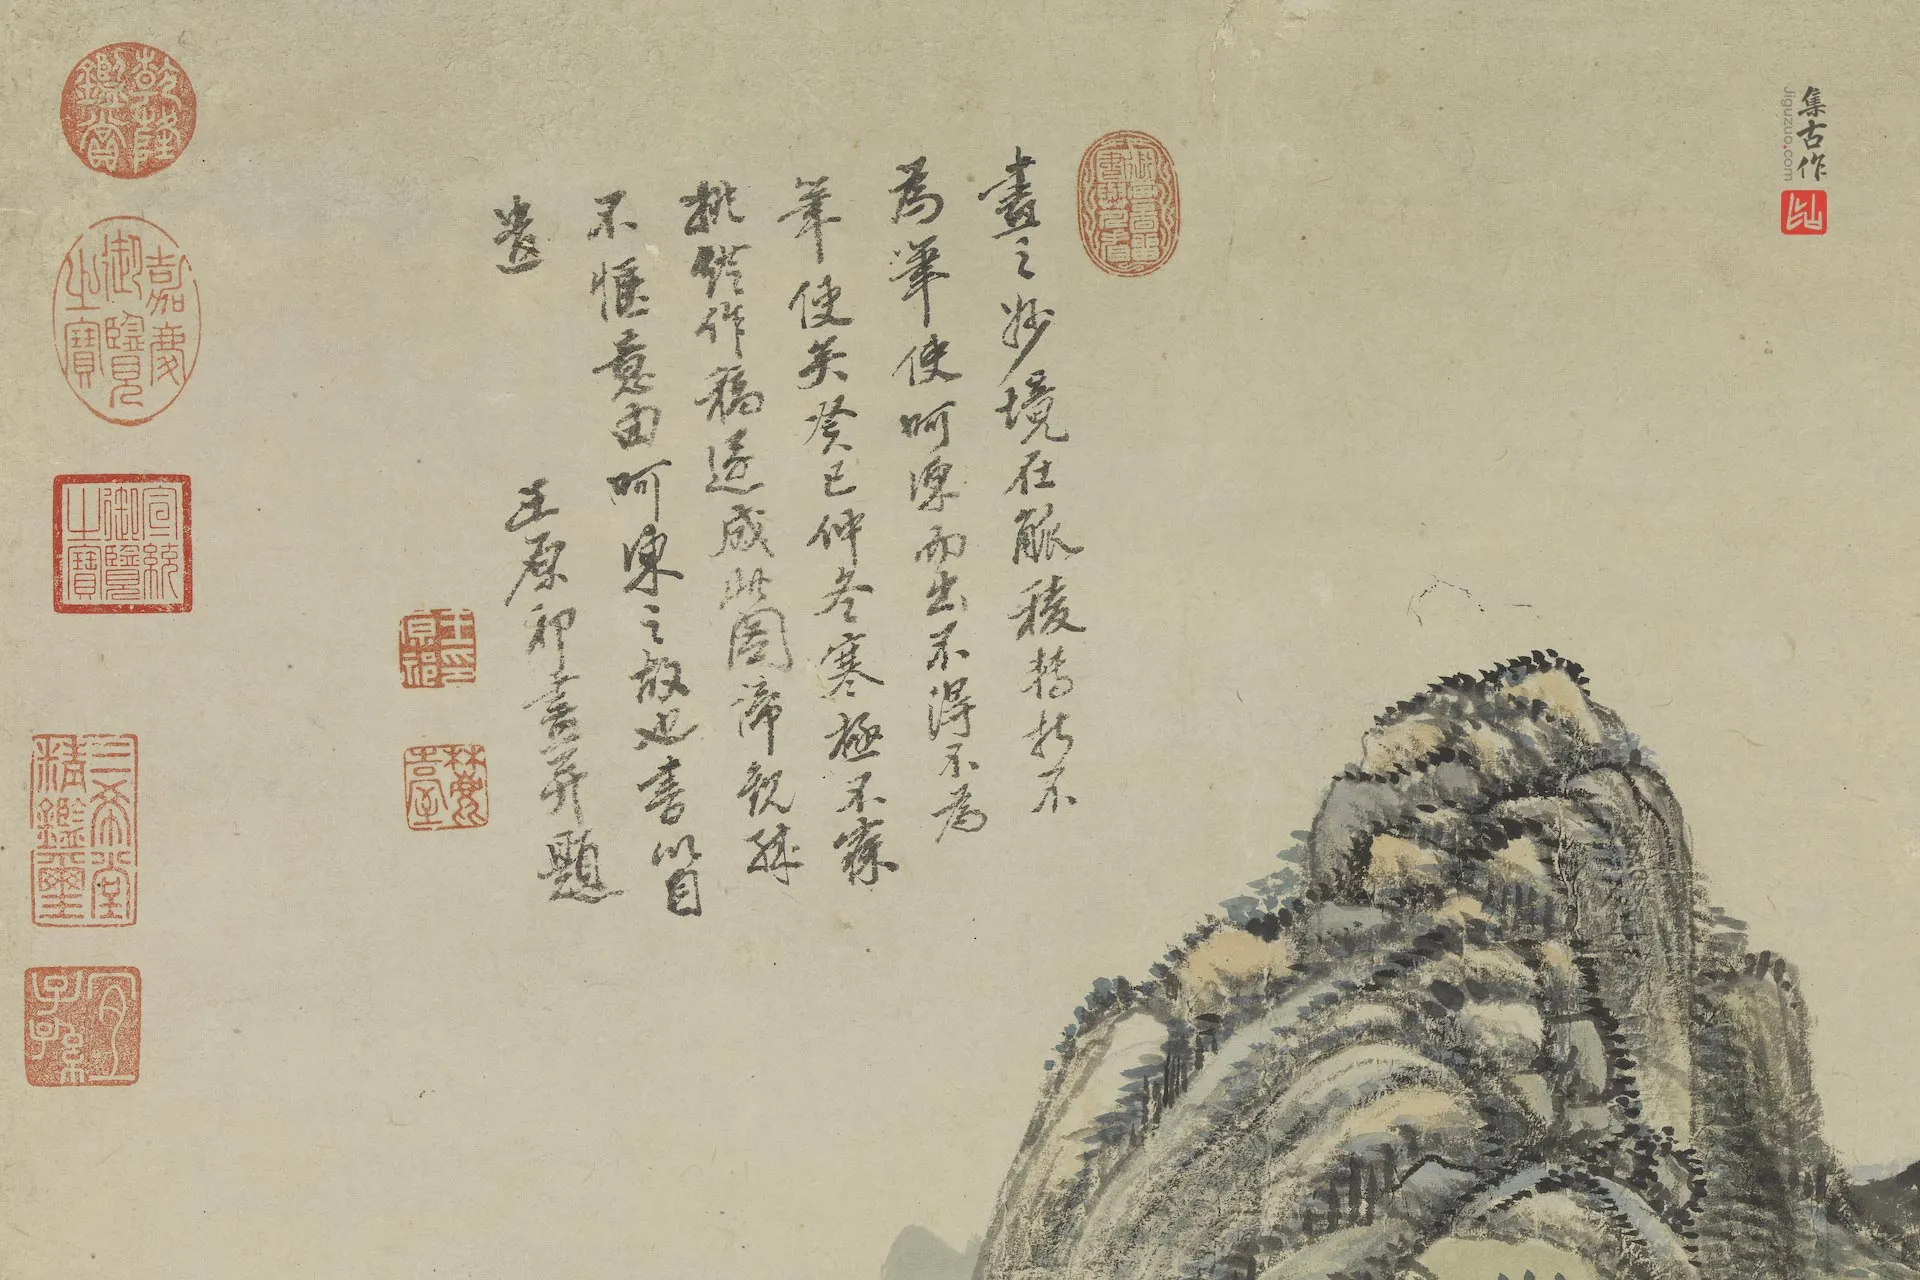 畫之妙境在觚稜轉折不
為筆使呵凍而出不得不為
筆使矣癸巳仲冬寒極不寐
挑燈作稿遂成此圖諦視殊
不愜意由呵凍之故也書以自
遣
王原祁畫并題
王原祁印
麓臺
乾隆鑑賞
嘉慶御覽之寶
宣統御覽之寶
三希堂精鑑璽
宜子孫
集古作
Jiguzuo.com